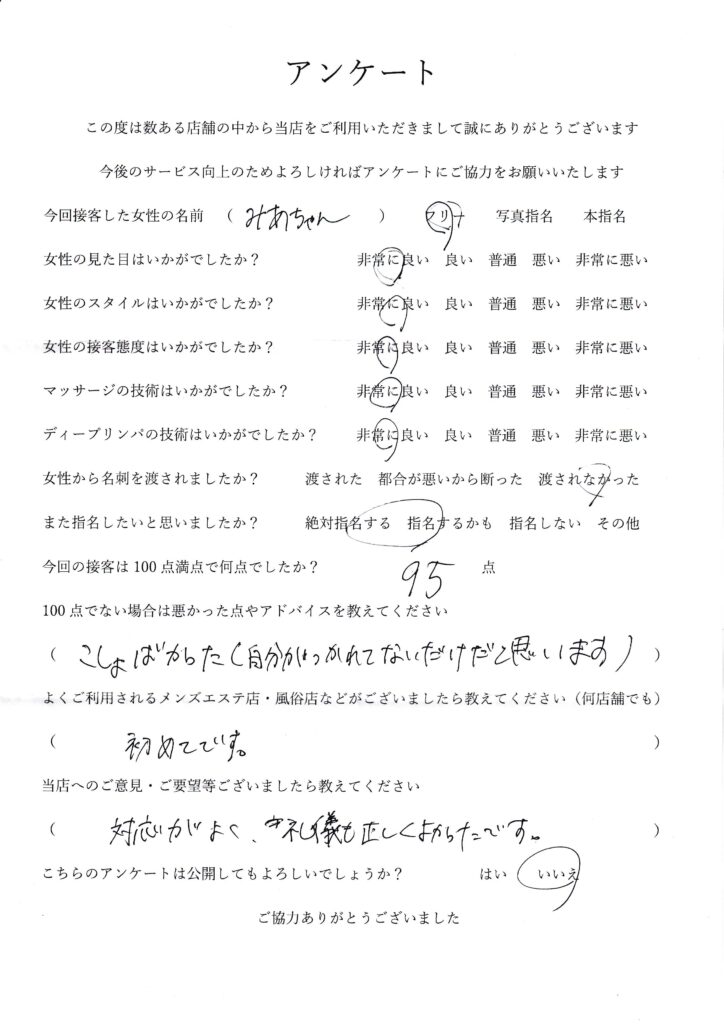 アンケート
この度は数ある店舗の中から当店をご利用いただきまして誠にありがとうございます
今後のサービス向上のためよろしければアンケートにご協力をお願いいたします
今回接客した女性の名前 ( みあちゃん ) フリー 写真指名 本指名
女性の見た目はいかがでしたか? 非常に良い 良い 普通 悪い 非常に悪い
女性のスタイルはいかがでしたか? 非常に良い 良い 普通 悪い 非常に悪い
女性の接客態度はいかがでしたか? 非常に良い 良い 普通 悪い 非常に悪い
マッサージの技術はいかがでしたか? 非常に良い 良い 普通 悪い 非常に悪い
ディープリンパの技術はいかがでしたか? 非常に良い 良い 普通 悪い 非常に悪い
女性から名刺を渡されましたか? 渡された 都合が悪いから断った 渡されなかった
また指名したいと思いましたか? 絶対指名する 指名するかも 指名しない その他
今回の接客は100点満点で何点でしたか? 95 点
100点でない場合は悪かった点やアドバイスを教えてください
( こしょばかった(自分がつかれてないだけだと思います) )
よくご利用されるメンズエステ店・風俗店などがございましたら教えてください(何店舗でも)
( 初めてです。 )
当店へのご意見・ご要望等ございましたら教えてください
( 対応がよく、礼儀も正しくよかったです。 )
こちらのアンケートは公開してもよろしいでしょうか? はい いいえ
ご協力ありがとうございました